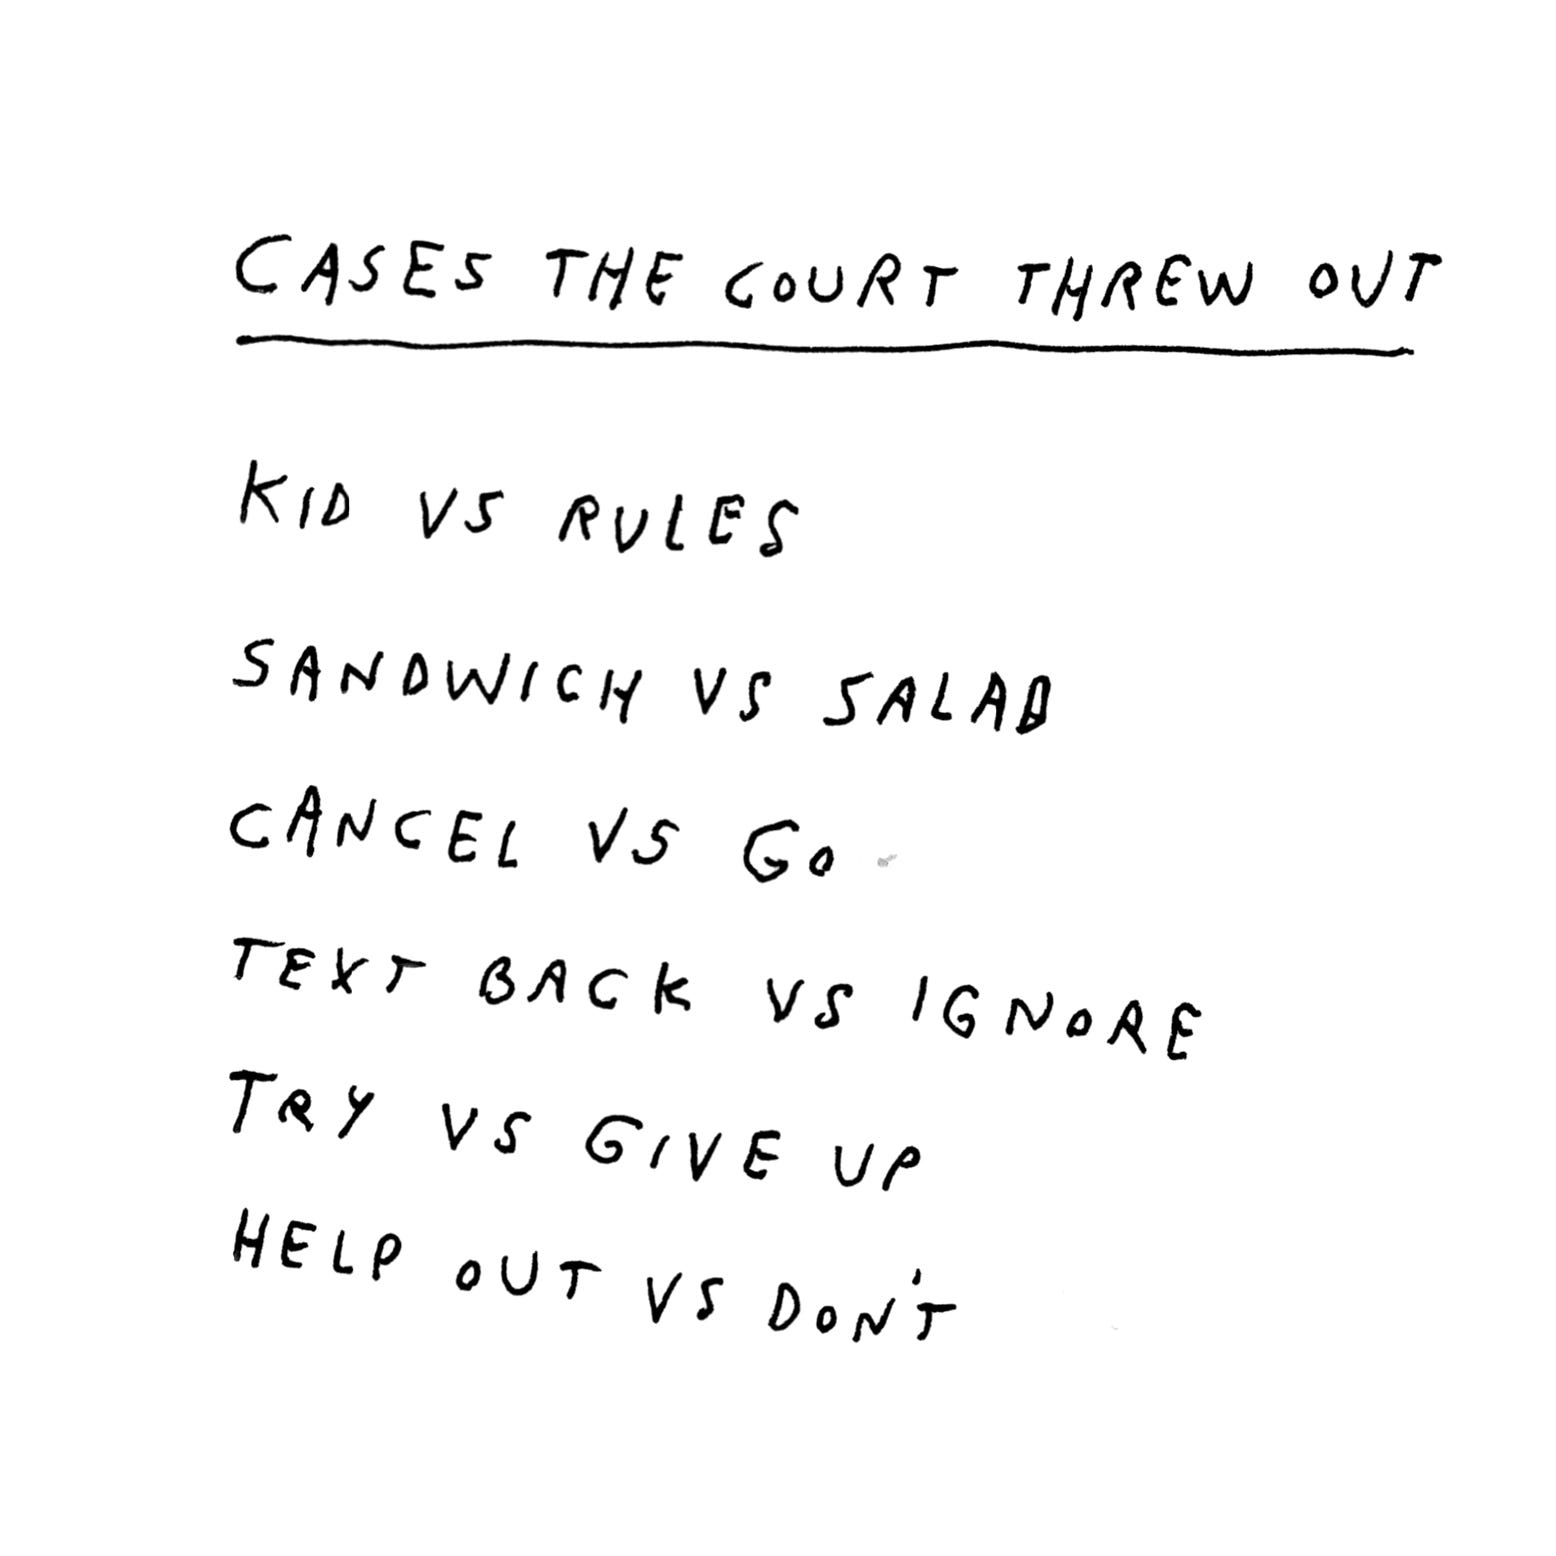 CASES THE COURT THREW OUT
KID VS RULES
SANDWICH VS SALAD
CANCEL VS GO
TEXT BACK VS IGNORE
TRY VS GIVE UP
HELP OUT VS DON'T